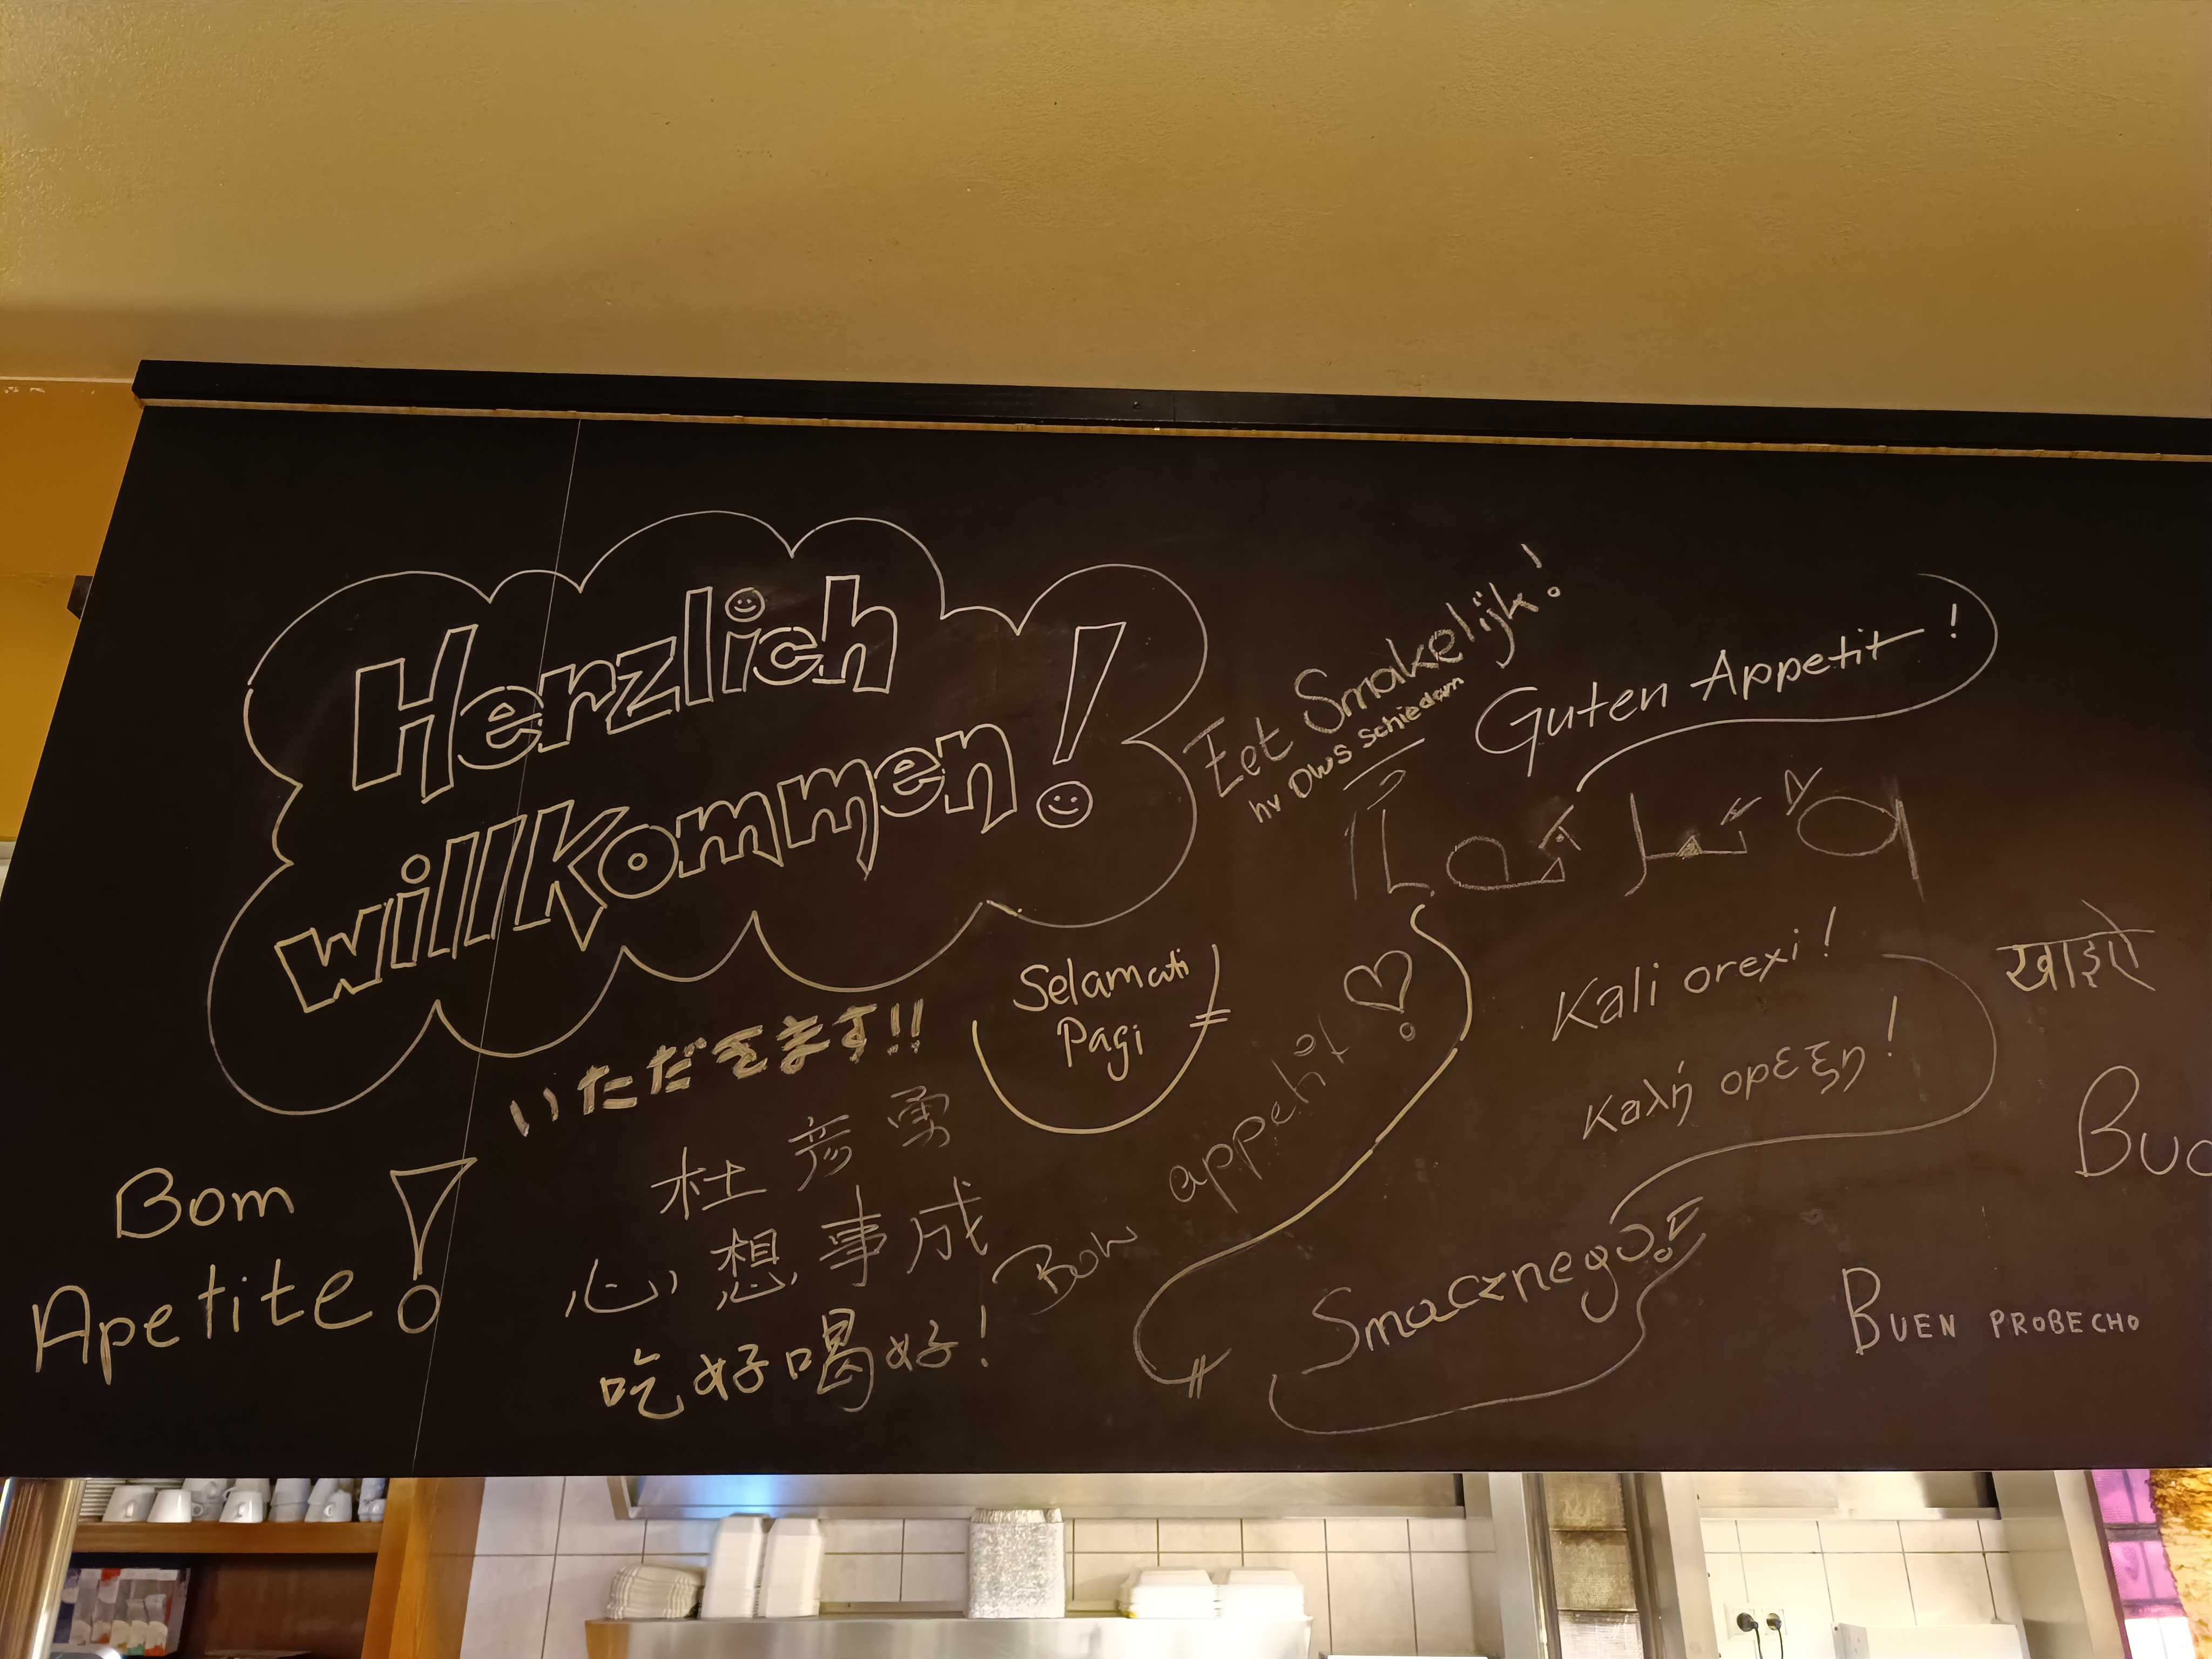 Herzlich
willkommen!
Eet Smakelijk!
hv DWS Schiedam
Guten Appetit!
Selamati
Pagi
いただきます!!
杜彦勇
心想事成
吃好喝好!
Bom
Apetite!
Bon appetit!
Kali orexi!
καλή ορεξη!
खाइऐ
Smacznego!
Buo
BUEN PROBECHO